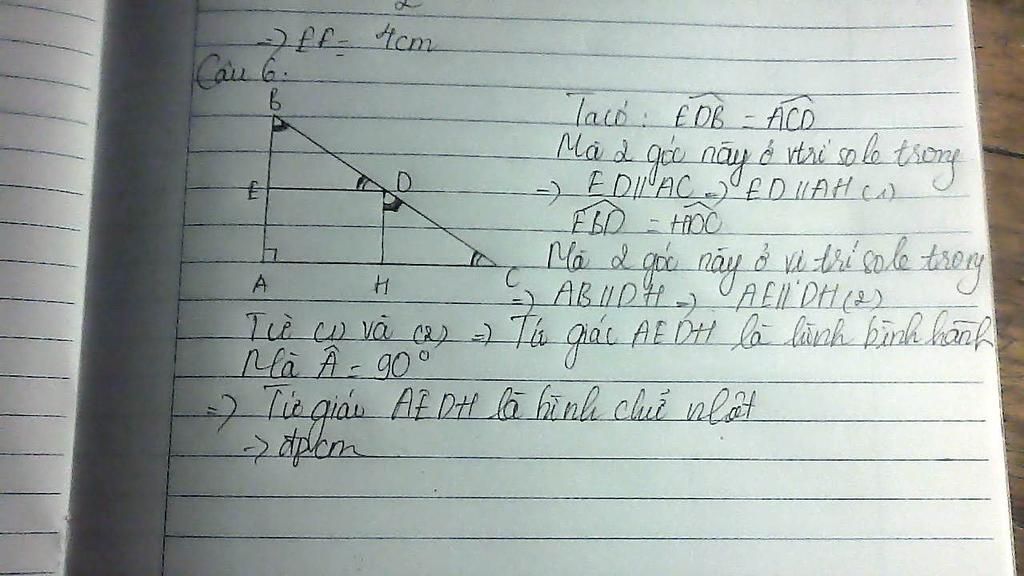 2
=> EF = 4cm
Câu 6:
B
E
D
A
H
C
Ta có: EDB = ACD
Mà 2 góc này ở vtrí sole trong
=> ED // AC => ED // AH (1)
EBD = HDC
Mà 2 góc này ở vị trí sole trong
=> AB // DH => AE // DH (2)
Từ (1) và (2) => Tứ giác AEDH là hình bình hành
Mà Â = 90°
=> Tứ giác AEDH là hình chữ nhật
=> đpcm